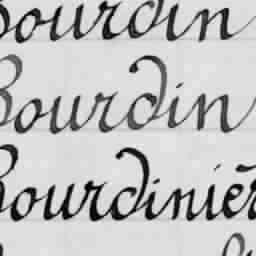 Bourdin
Bourdin
Bourdinièr